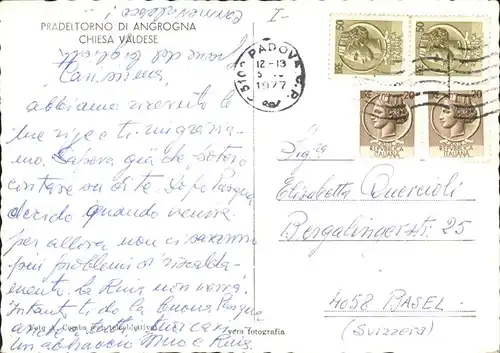 PRADELTORNO DI ANGROGNA
CHIESA VALDESE
Carissima,
abbiamo ricevuto le
tue righe e ti ringrazia-
mo. Sapevo già che potevo
contare su di te. Dopo Pasqua
decido quando venire
per allora non ci saranno
più problemi di riscalda-
mento. La
Intanto ti do la buona Pasqua
anche
un abbraccio
Foto A.
Vera fotografia
I-
PADOVA C.P.
12-13
1977
LIRE 50
50
LIRE 20
20
REPUBBLICA
ITALIANA
REPUBBLICA
ITALIANA
Sig.ra
Elisabetta Quercioli
Bergalingerstr. 25
4058 BASEL
(Svizzera)